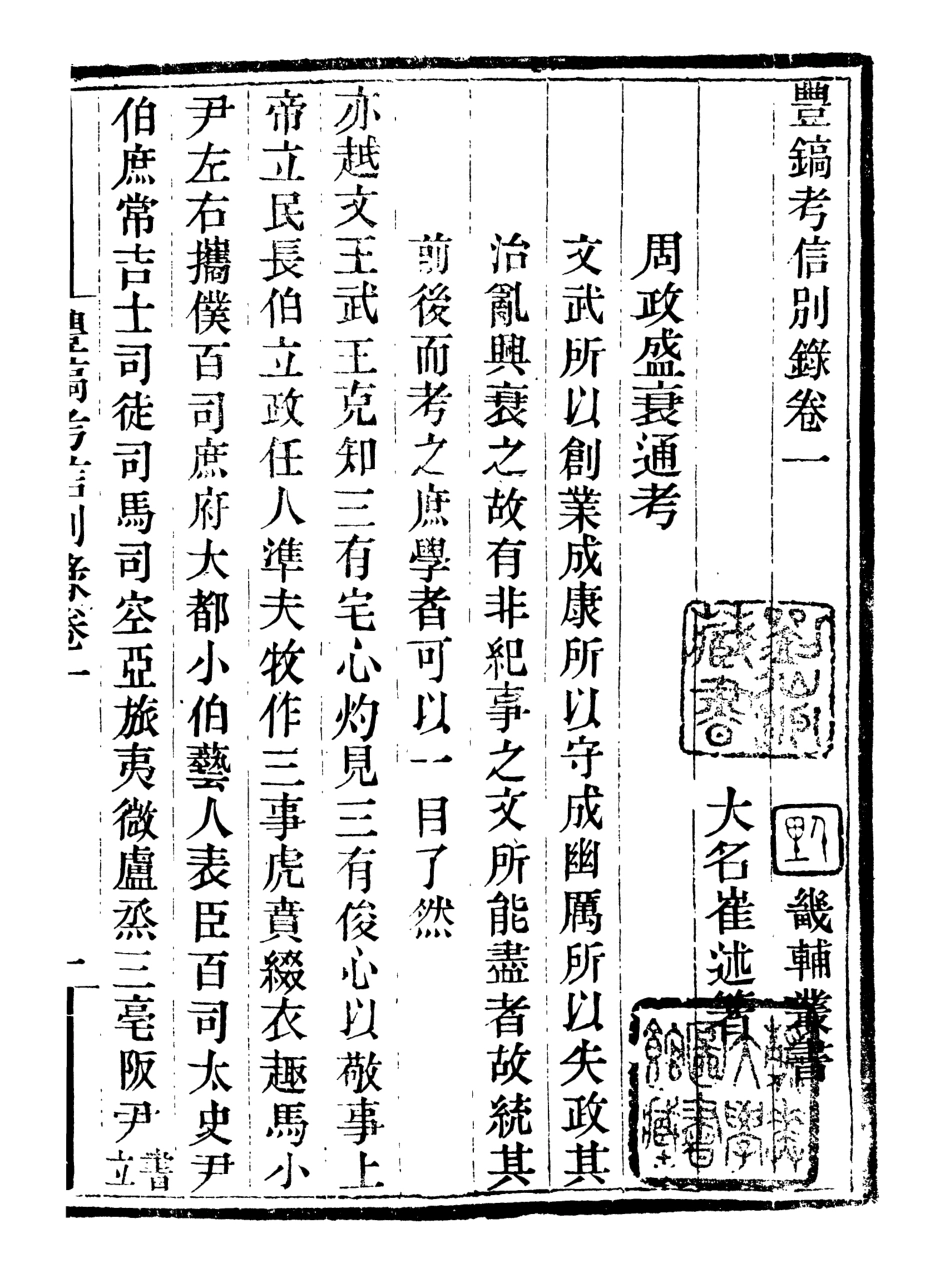 豐鎬考信別錄卷一 畿輔叢書
大名崔述著
藏書
大學
圖書
館藏
周政盛衰通考
文武所以創業成康所以守成幽厲所以失政其
治亂興衰之故有非紀事之文所能盡者故統其
前後而考之庶學者可以一目了然
亦越文王武王克知三有宅心灼見三有俊心以敬事上
帝立民長伯立政任人準夫牧作三事虎賁綴衣趣馬小
尹左右攜僕百司庶府大都小伯藝人表臣百司太史尹
伯庶常吉士司徒司馬司空亞旅夷微盧烝三亳阪尹書立
豐鎬考信別錄卷一 一